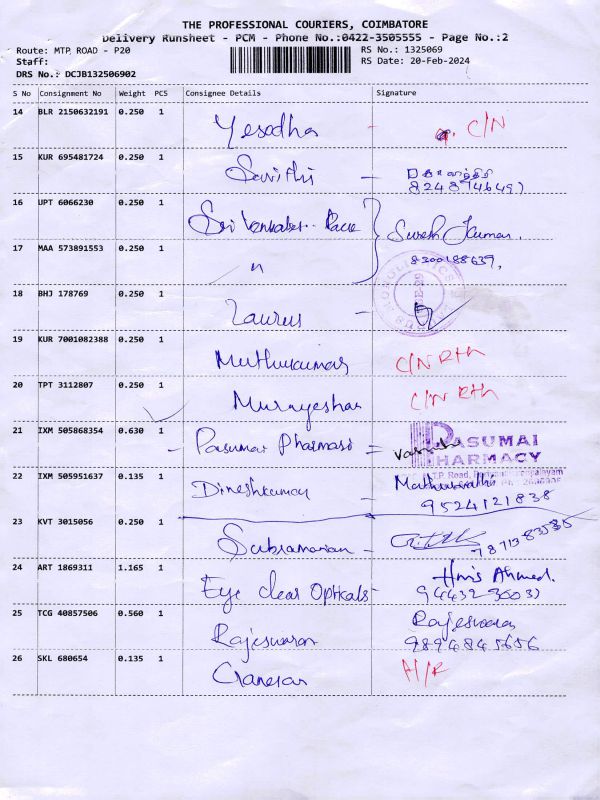 THE PROFESSIONAL COURIERS, COIMBATORE
Delivery Runsheet - PCM - Phone No.:0422-3505555 - Page No.:2
Route: MTP ROAD - P20
RS No.: 1325069
Staff:
RS Date: 20-Feb-2024
DRS No.: DCJB132506902
S No Consignment No Weight PCS Consignee Details Signature
14 BLR 2150632191 0.250 1 Yesodha - C/N
15 KUR 695481724 0.250 1 Savithi -
16 UPT 6066230 0.250 1 Sri Venkates.. Suresh Kumar.
17 MAA 573891553 0.250 1 " 8200188639,
18 BHJ 178769 0.250 1 Laurus -
19 KUR 7001082388 0.250 1 Muthukumar C/N Rth
20 TPT 3112807 0.250 1 Murugeshan C/N Rth
21 IXM 505868354 0.630 1 - Pasumai Pharmasi = PASUMAI PHARMACY
22 IXM 505951637 0.135 1 Dineshkumar -
9524121838
23 KVT 3015056 0.250 1 Subramanian -
24 ART 1869311 1.165 1 Eye clear Opticals - Ahmed.
25 TCG 40857506 0.560 1 Rajeswaran Rajeswaran
9894845656
26 SKL 680654 0.135 1 Ganesan